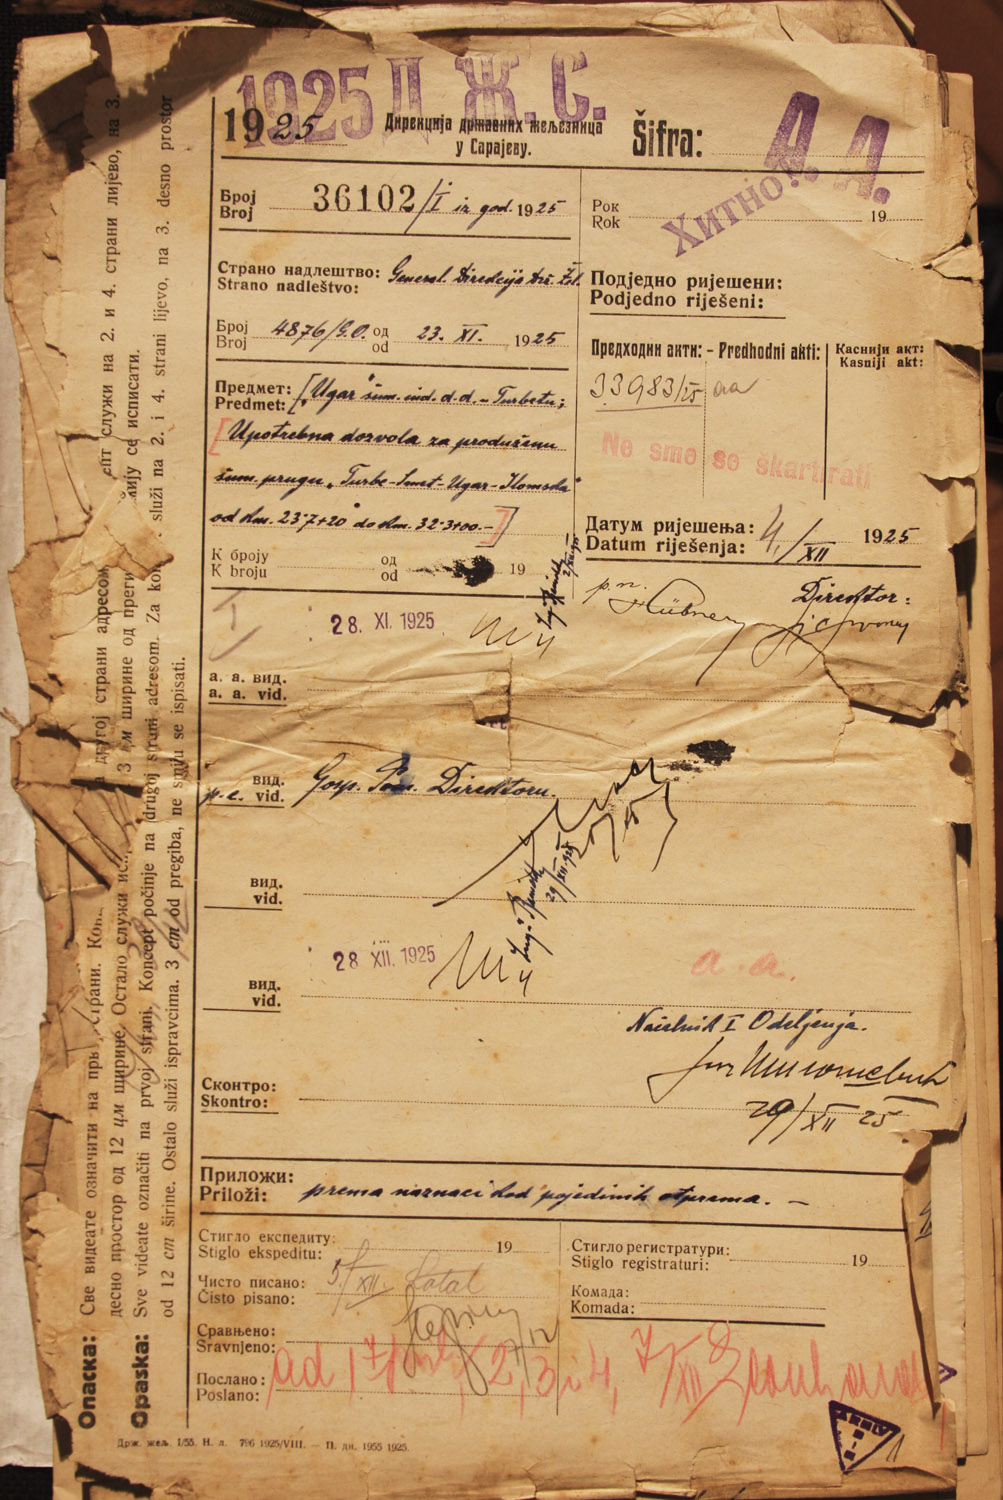 1925 Д. Ж. С.
1925
Дирекција државних жељезница
у Сарајеву.
Šifra:
А. А.
Хитно!
Број
Broj
36102/I iz god. 1925
Рок
Rok
19
Страно надлештво:
Strano nadleštvo:
General. Direkcija Drž. Žel.
Број
Broj
4876/G.O. од
od
23. XI. 1925
Подједно ријешени:
Podjedno riješeni:
Предходни акти: - Predhodni akti:
33983/25 aa
Каснији акт:
Kasniji akt:
Ne sme se škartirati
Предмет:
Predmet:
["Ugar" šum. ind. d.d. - Turbetu;
Upotrebna dozvola za produženu
šum. prugu „Turbe-Smet-Ugar-
od km. 23·7+20 do km. 32·3+00.-]
К броју
K broju
од
od
19
Датум ријешења:
Datum riješenja:
4/XII 1925
p. n.
Direktor:
I
28. XI. 1925
а. а. вид.
a. a. vid.
p. c.
вид.
vid.
Gosp. Pom. Direktoru.
вид.
vid.
29/XII 925
28 XII. 1925
вид.
vid.
a. a.
Načelnik I Odeljenja.
29/XII 25
Сконтро:
Skontro:
Приложи:
Priloži:
prema naznaci kod pojedinih otprema. -
Стигло експедиту:
Stiglo ekspeditu:
19
Стигло регистратури:
Stiglo registraturi:
19
Чисто писано:
Čisto pisano:
5/XII
Комада:
Komada:
Сравњено:
Sravnjeno:
7/12
Послано:
Poslano:
ad 1, 2, 3 i 4, 7/XII
Држ. жељ. I/55. Н. л. 796 1925/VIII. — П. дн. 1955 1925.
Опаска:
Све видеате означити на
десно простор од 12 цм ширине. Остало служи
Opaska:
Sve videate označiti na prvoj strani. Koncept počinje na drugoj strani adresom. Za
služi na 2. i 4. strani lijevo, na 3. desno prostor
od 12 cm širine. Ostalo služi ispravcima. 3 cm od pregiba, ne smiju se ispisati.
другој страни адресом
служи на 2. и 4. страни лијево, на 3.
ширине од
се исписати.